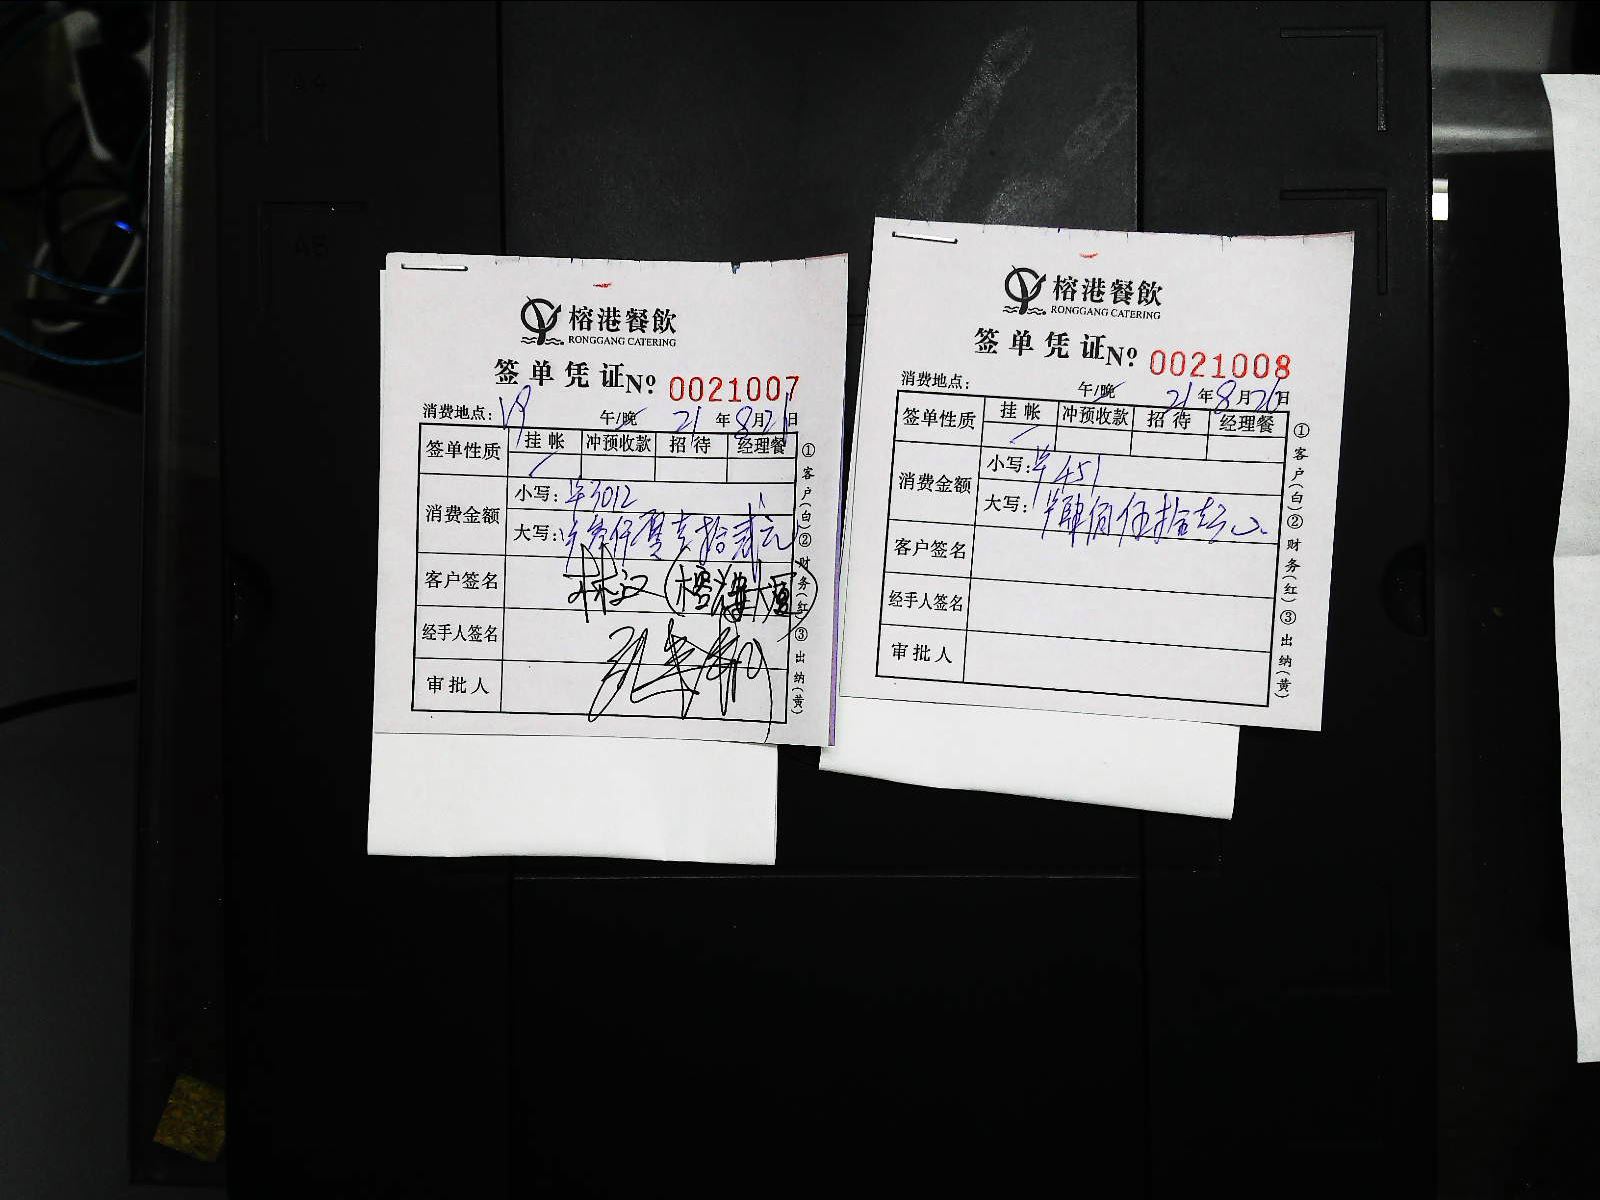 榕港餐飲
RONGGANG CATERING
签单凭证 Nº 0021007
消费地点: 午/晚 21年8月21日
签单性质 挂帐 冲预收款 招待 经理餐
消费金额 小写: ¥3012
大写: 叁仟零壹拾贰元
客户签名 林汉(榕港大厦)
经手人签名
审批人
①客户(白)②财务(红)③出纳(黄)
榕港餐飲
RONGGANG CATERING
签单凭证 Nº 0021008
消费地点: 午/晚 21年8月26日
签单性质 挂帐 冲预收款 招待 经理餐
消费金额 小写: ¥451
大写: 肆佰伍拾壹元
客户签名
经手人签名
审批人
①客户(白)②财务(红)③出纳(黄)